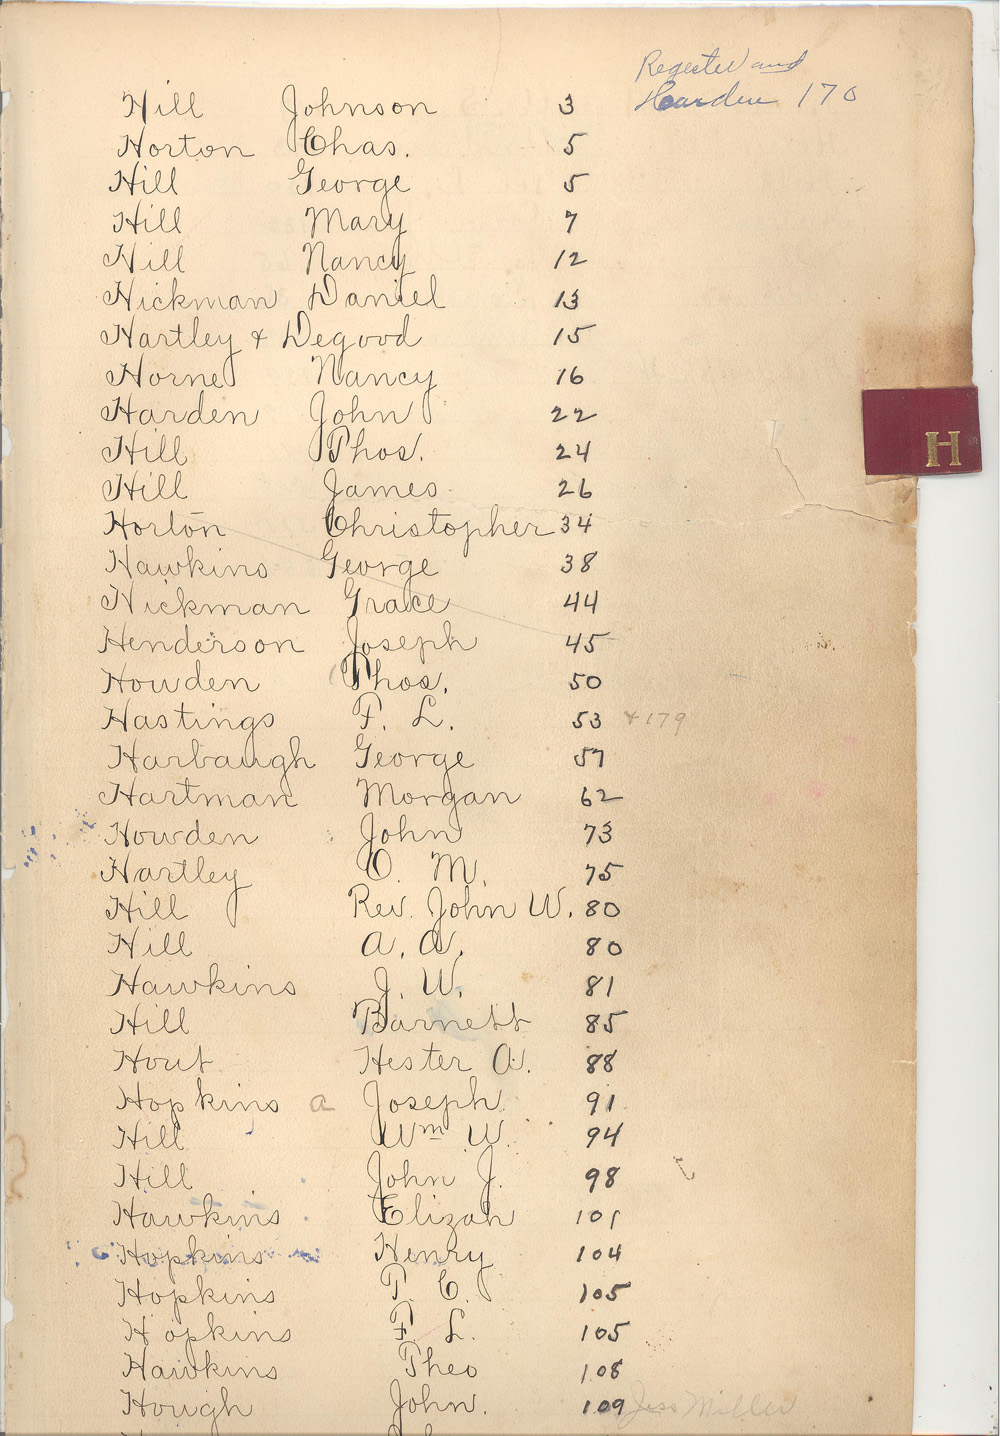 Register and
Harden 170
Hill Johnson 3
Horton Chas. 5
Hill George 5
Hill Mary 7
Hill Nancy 12
Hickman Daniel 13
Hartley & Degood 15
Horne Nancy 16
Harden John 22
H
Hill Thos. 24
Hill James 26
Horton Christopher 34
Hawkins George 38
Hickman Grace 44
Henderson Joseph 45
Howden Thos. 50
Hastings F. L. 53 & 179
Harbaugh George 57
Hartman Morgan 62
Howden John 73
Hartley O. M. 75
Hill Rev. John W. 80
Hill A. A. 80
Hawkins J. W. 81
Hill Barnett 85
Hout Hester A. 88
Hopkins a Joseph 91
Hill Wm W. 94
Hill John J. 98
Hawkins Elizah 101
Hopkins Henry 104
Hopkins P. C. 105
Hopkins F. L. 105
Hawkins Theo 108
Hough John. 109 Jess Miller